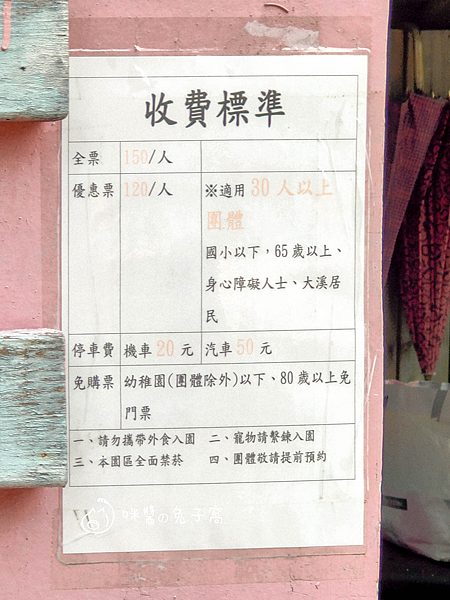 收費標準
全票 150/人
優惠票 120/人 ※適用 30 人以上
團體
國小以下，65 歲以上、
身心障礙人士、大溪居
民
停車費 機車 20 元 汽車 50 元
免購票 幼稚園(團體除外)以下、80 歲以上免
門票
一、請勿攜帶外食入園 二、寵物請繫鍊入園
三、本園區全面禁菸 四、團體敬請提前預約
咪醬の兔子窩